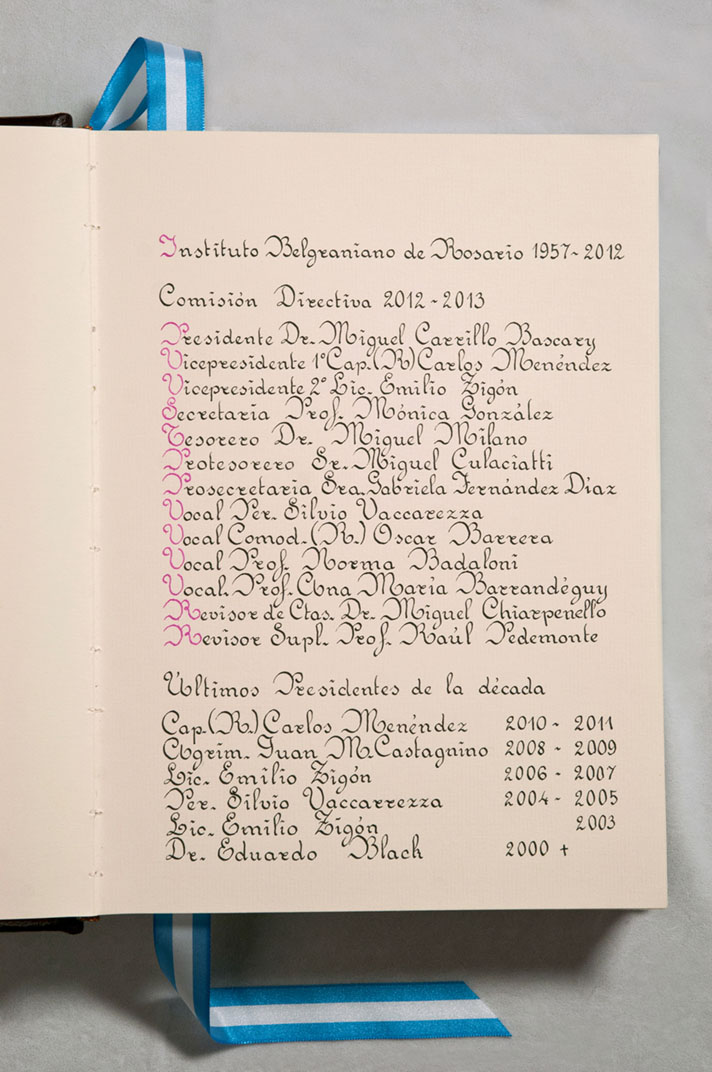 Instituto Belgraniano de Rosario 1957~2012
Comisión Directiva 2012~2013
Presidente Dr. Miguel Carrillo Bascary
Vicepresidente 1° Cap.(R) Carlos Menéndez
Vicepresidente 2° Lic. Emilio Zigón
Secretaria Prof. Mónica González
Tesorero Dr. Miguel Milano
Protesorero Sr. Miguel Culaciatti
Prosecretaria Sra. Gabriela Fernández Díaz
Vocal Per. Silvio Vaccarezza
Vocal Comod.(R.) Oscar Barrera
Vocal Prof. Norma Badaloni
Vocal. Prof. Ana María Barrandéguy
Revisor de Ctas. Dr. Miguel Chiarpenello
Revisor Supl. Prof. Raúl Pedemonte
Últimos Presidentes de la década
Cap.(R.) Carlos Menéndez 2010 - 2011
Agrim. Juan M. Castagnino 2008 - 2009
Lic. Emilio Zigón 2006 - 2007
Per. Silvio Vaccarrezza 2004 - 2005
Lic. Emilio Zigón 2003
Dr. Eduardo Black 2000 +